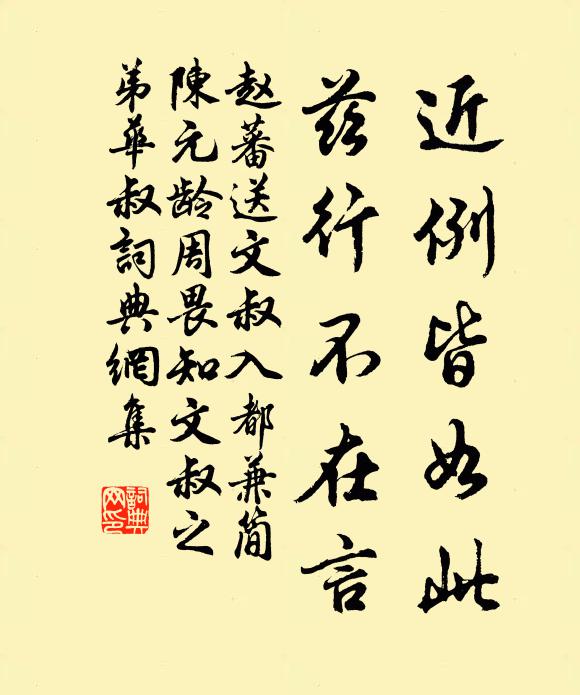 近例皆如此
茲行不在言
赵蕃送文叔入都兼简
陳元龄周畏知文叔之
弟華叔詞典網集
詞典
网印